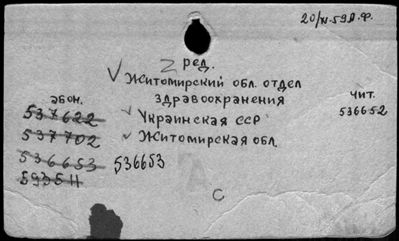 20/XI-59 Л.Ф.
2 ред.
√ Житомирский обл. отдел
здравоохранения
абон. чит.
537622 √ Украинская ССР 536652
537702 √ Житомирская обл.
536653 536653
593511
С